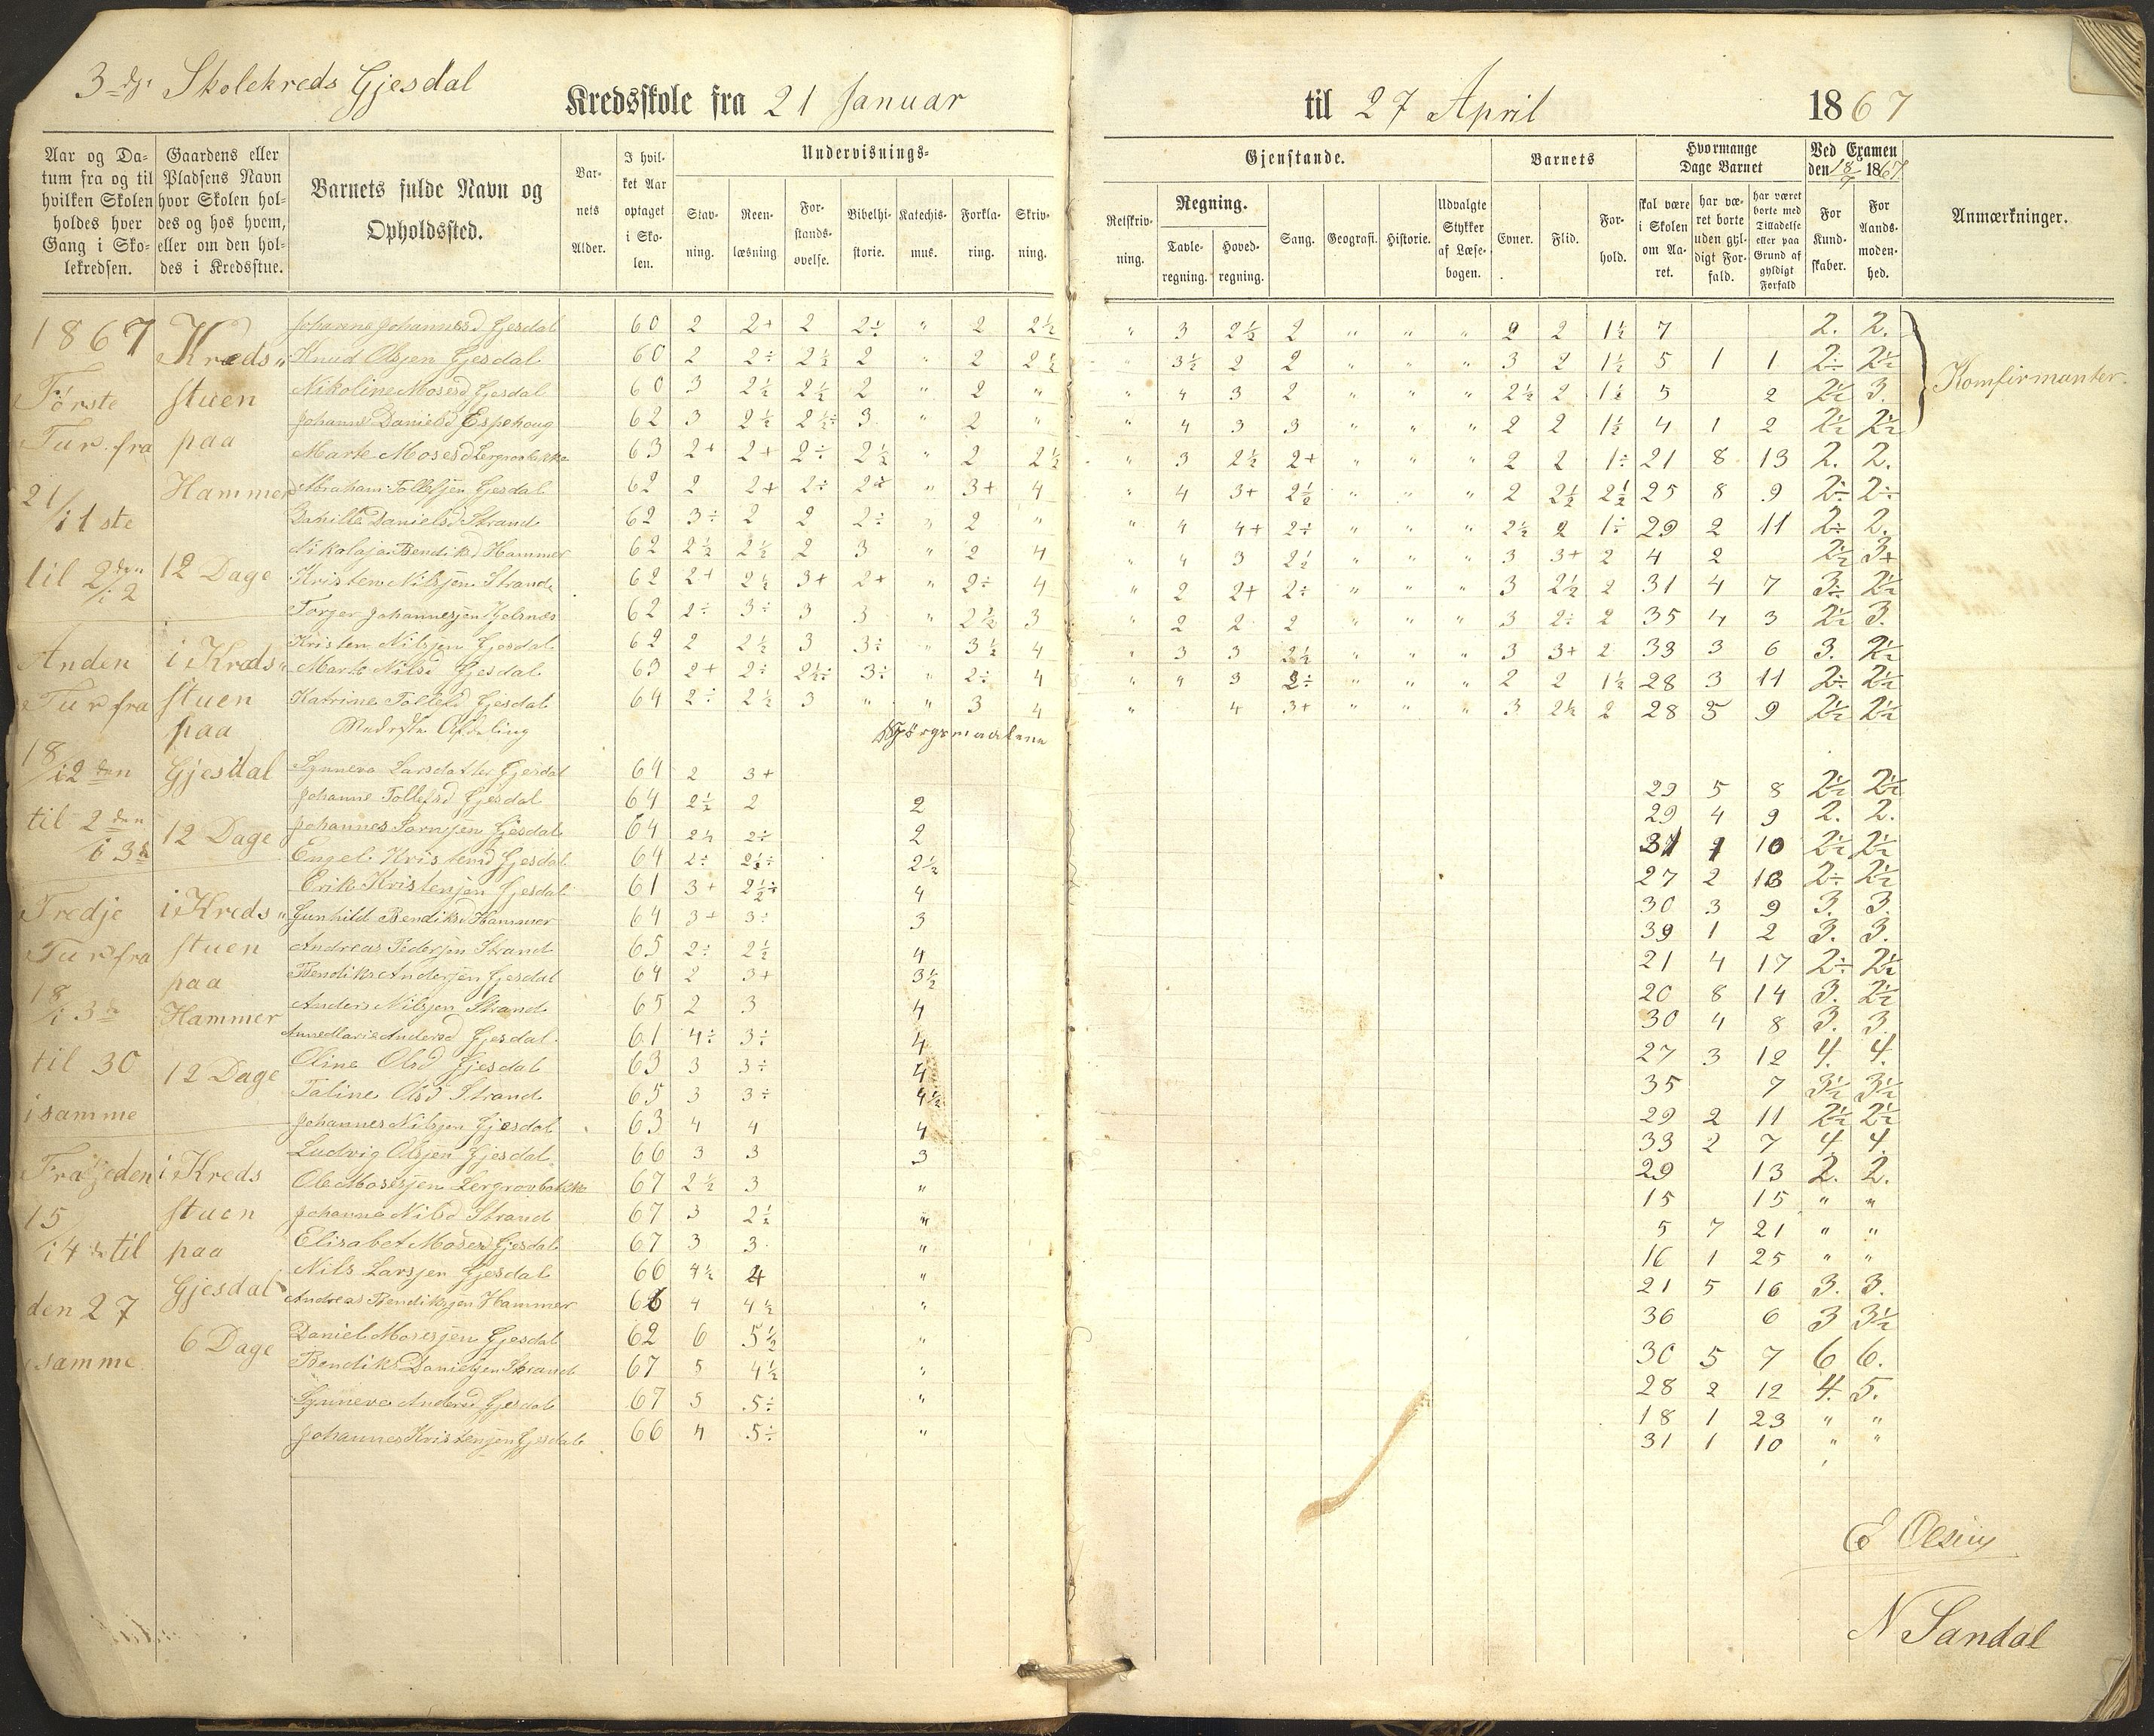 3die Skolekreds Gjesdal
Kredsskole fra 21 Januar til 27 April 1867
Aar og Datum fra og til hvilken Skolen holdes hver Gang i Skolekredsen.
Gaardens eller Pladsens Navn hvor Skolen holdes og hos hvem, eller om den holdes i Kredsstue.
Barnets fulde Navn og Opholdssted.
Barnets Alder.
I hvilket Aar optaget i Skolen.
Undervisnings-Gjenstande.
Stavning. Reenlæsning Forstandsøvelse. Bibelhistorie. Katechismus. Forklaring. Skrivning.
Retskrivning. Regning. Tavleregning. Hovedregning. Sang. Geografi. Historie. Udvalgte Stykker af Læsebogen.
Barnets Evner. Flid. Forhold.
Hvormange Dage Barnet
skal være i Skolen om Aaret. har været borte uden gyldigt Forfald. har været borte med Tilladelse eller paa Grund af gyldigt Forfald
Ved Examen den 18/7 1867
For Kundskaber. For Aandsmodenhed.
Anmærkninger.
1867 Første Tur fra 21/i 1ste til 2den i 2
Kreds„ stuen paa Hammer 12 Dage
Anden Tur fra 18/i 2den til 2den i 3d
i Kreds„ stuen paa Gjesdal 12 Dage
Tredje Tur fra 18/i 3d til 30 i samme
i Kreds„ stuen paa Hammer 12 Dage
15/i 4d til den 27 i samme
i Kreds stuen paa Gjesdal 6 Dage
Johanne Johannesd Gjesdal 60 2 2+ 2 2÷ „ 2 2½ „ 3 2½ 2 „ „ „ 2 2 1½ 7 2. 2.
Knud Olsjen Gjesdal 60 2 2÷ 2½ 2 „ 2 2½ „ 3½ 2 2 „ „ „ 3 2 1½ 5 1 1 2÷ 2½
Nikoline Mosesd Gjesdal 60 3 2½ 2½ 2 „ 2 „ „ 4 3 2 „ „ „ 2½ 2 1½ 5 2 2½ 3.
Johanne Danielsd Espehoug 62 3 2½ 2½÷ 3 „ 2 „ „ 4 3 3 „ „ „ 2 2 1½ 4 1 2 2½ 2½
Komfirmanter.
Marte Mosesd 63 2+ 2+ 2÷ 2½ „ 2 2½ „ 3 2½ 2+ „ „ „ 2 2 1÷ 21 8 13 2. 2.
Abraham Tollefsjen Gjesdal 62 2 2+ 2÷ 2÷ „ 3+ 4 „ 4 3+ 2½ „ „ „ 2 2½ 2½ 25 8 9 2÷ 2÷
Danielsd Strand 62 3÷ 2 2 2÷ „ 2 „ „ 4 4+ 2÷ „ „ „ 2½ 2 1÷ 29 2 11 2÷ 2.
Nikolaja Bendiksd Hammer 62 2½ 2½ 2 3 „ 2 4 „ „ 3 2½ „ „ „ 3 3+ 2 4 2 2½ 3+
Kristen Nilsjen Strand 62 2+ 2½ 3+ 2+ „ 2÷ 4 „ 2 2+ 2÷ „ „ „ 3 2½ 2 31 4 7 3÷ 2½
Torger Johannesjen 62 2÷ 3÷ 3 3 „ 2½ 3 „ 2 2 2 „ „ „ 3 2÷ 2 35 4 3 2½ 3.
Kristen Nilsjen Gjesdal 62 2 2½ 3 3÷ „ 3½ 4 „ 3 3 2½ „ „ „ 3 3+ 2 33 3 6 3. 2½
Marte Nilsd Gjesdal 63 2+ 2÷ 2½÷ 3÷ „ 2÷ 4 „ „ 3 2÷ „ „ „ 2 2 1½ 28 3 11 2÷ 2½
Katrine Tollefsd Gjesdal 64 2÷ 2½ 3 „ „ 3 4 „ 4 3+ „ „ „ 3 2½ 2 28 5 9 2½ 2½
Nederste Afdeling Spørgsmaalene
Synneva Larsdatter Gjesdal 64 2 3+ 29 5 8 2½ 2½
Johanne Tollefsd Gjesdal 64 2½ 2 2 29 4 9 2. 2.
Johannes Gjesdal 64 2½ 2÷ 2 10 2½ 2½
Engel Kristensd Gjesdal 64 2÷ 2½÷ 2½ 27 2 13 2÷ 2½
Erik Kristenjen Gjesdal 61 3+ 2½÷ 4 30 3 9 3. 3.
Gunhild Bendiksd Hammer 64 3+ 3÷ 3 39 1 2 3. 3.
Andreas Pedersjen Strand 65 2÷ 2½ 4 21 4 17 2÷ 2½
Bendik Andersjen Gjesdal 64 2 3+ 3½ 20 8 14 3. 2½
Anders Nilsjen Strand 65 2 3 4 30 4 8 3. 3.
Anne Marie Andersd Gjesdal 61 4÷ 3÷ 4 27 3 12 4. 4.
Oline Olsd Gjesdal 63 3 3÷ 4 35 7 3½ 3½
Taline Olsd Strand 65 3 3÷ 4½ 29 2 11 2½ 2½
Johannes Nilsjen Gjesdal 63 4 4 4 33 2 7 4. 4.
Ludvig Olsjen Gjesdal 66 3 3 3 29 13 2. 2.
Ole Mosesjen 67 2½ 3 „ 15 15 „ „
Johanna Nilsd Strand 67 3 2½ „ 5 7 21 „ „
Elisabet Mosesd Gjesdal 67 3 3 „ 16 1 25 „ „
Nils Larsjen Gjesdal 66 4½ 4 „ 21 5 16 3. 3.
Andreas Bendiksjen Hammer 66 4 4½ „ 36 6 3 3½
Daniel Mosesjen Gjesdal 62 6 5½ „ 30 5 7 6 6.
Bendik Danielsjen Strand 67 5 4½ „ 28 2 12 4. 5.
Synneva Andersd Gjesdal 67 5 5÷ „ 18 1 23 „ „
Johannes Kristenjen Gjesdal 66 4 5÷ „ 31 1 10 „ „
N Sandal